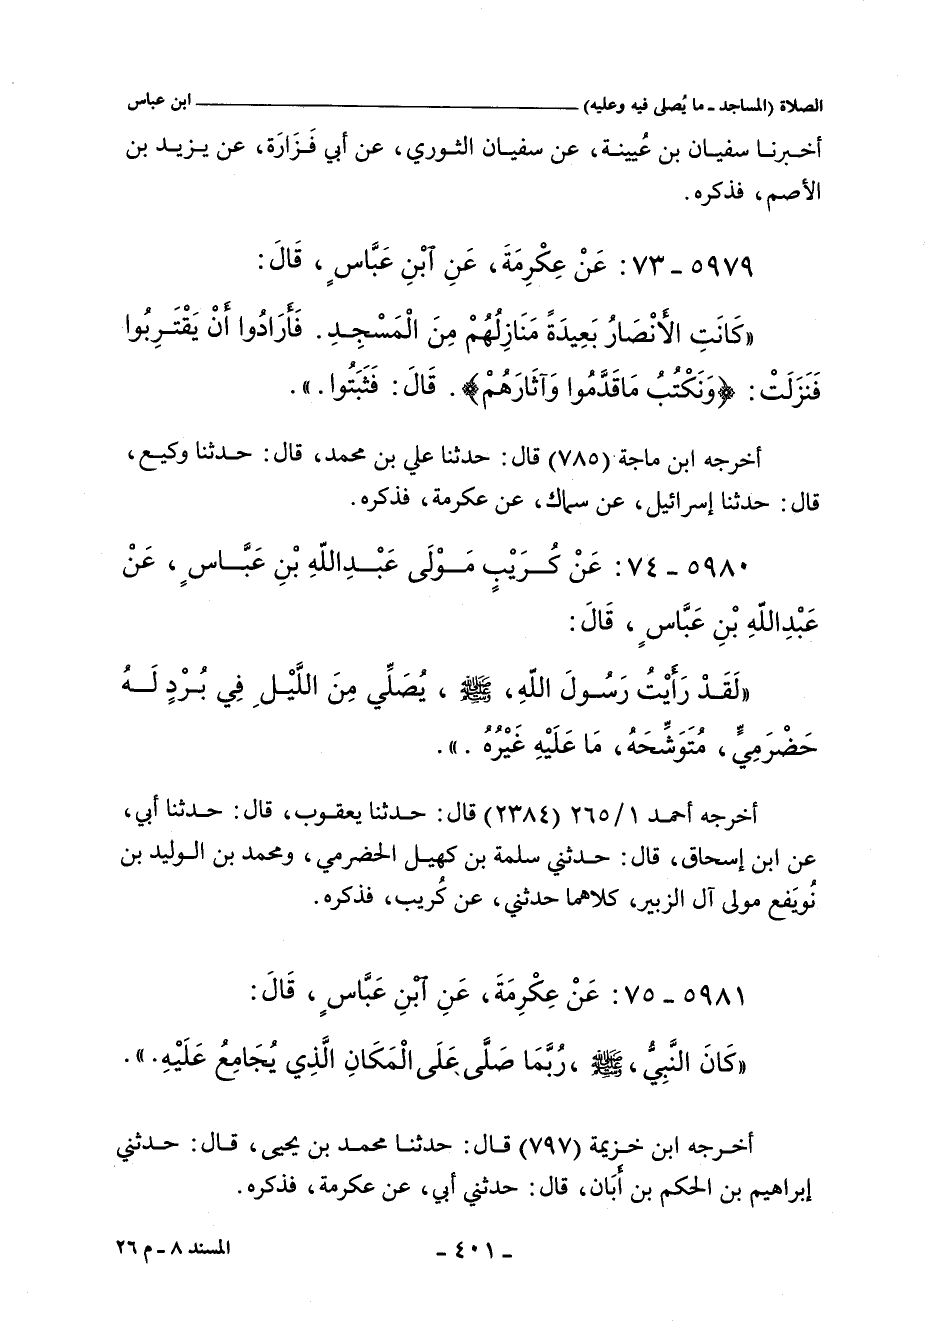 الصلاة (المساجد ـ ما يُصلى فيه وعليه) ــــــــــــــــ ابن عباس
أخبرنا سفيان بن عُيينة، عن سفيان الثوري، عن أبي فَزارَة، عن يزيد بن
الأصم، فذكره.
٥٩٧٩ ـ ٧٣: عَنْ عِكْرِمَةَ، عَنِ ٱبْنِ عَبَّاسٍ، قَالَ:
«كَانَتِ الأَنْصَارُ بَعِيدَةً مَنَازِلُهُمْ مِنَ الْمَسْجِدِ. فَأَرَادُوا أَنْ يَقْتَرِبُوا
فَنَزَلَتْ: ﴿وَنَكْتُبُ مَاقَدَّمُوا وَآثَارَهُمْ﴾. قَالَ: فَثَبَتُوا.».
أخرجه ابن ماجة (٧٨٥) قال: حدثنا علي بن محمد، قال: حدثنا وكيع،
قال: حدثنا إسرائيل، عن سماك، عن عكرمة، فذكره.
٥٩٨٠ ـ ٧٤: عَنْ كُرَيْبٍ مَوْلَى عَبْدِاللّهِ بْنِ عَبَّاسٍ، عَنْ
عَبْدِاللّهِ بْنِ عَبَّاسٍ، قَالَ:
«لَقَدْ رَأَيْتُ رَسُولَ اللّهِ، ﷺ، يُصَلِّي مِنَ اللَّيْلِ فِي بُرْدٍ لَهُ
حَضْرَمِيٍّ، مُتَوَشِّحَهُ، مَا عَلَيْهِ غَيْرُهُ.».
أخرجه أحمد ١/ ٢٦٥ (٢٣٨٤) قال: حدثنا يعقوب، قال: حدثنا أبي،
عن ابن إسحاق، قال: حدثني سلمة بن كهيل الحضرمي، ومحمد بن الوليد بن
نُويَفع مولى آل الزبير، كلاهما حدثني، عن كُريب، فذكره.
٥٩٨١ ـ ٧٥: عَنْ عِكْرِمَةَ، عَنِ ٱبْنِ عَبَّاسٍ، قَالَ:
«كَانَ النَّبِيُّ، ﷺ، رُبَّمَا صَلَّى عَلَى الْمَكَانِ الَّذِي يُجَامِعُ عَلَيْهِ.».
أخرجه ابن خزيمة (٧٩٧) قال: حدثنا محمد بن يحيى، قال: حدثني
إبراهيم بن الحكم بن أَبَان، قال: حدثني أبي، عن عكرمة، فذكره.
ـ ٤٠١ ـ
المسند ٨ ـ م ٢٦